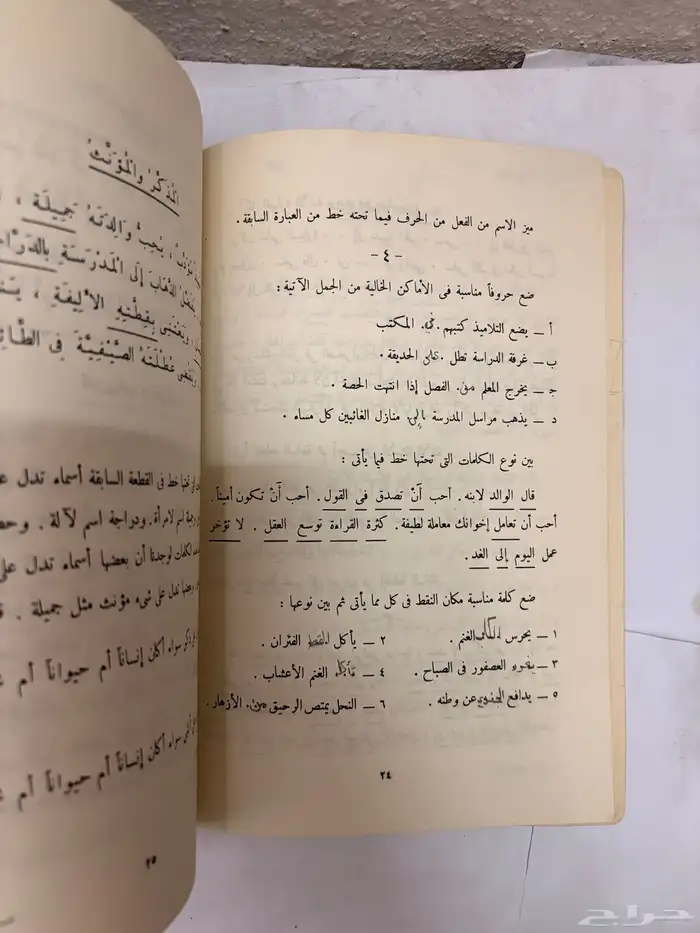 ميز الاسم من الفعل من الحرف فيما تحته خط من العبارة السابقة .
ــ ٤ ــ
ضع حروفاً مناسبة فى الأماكن الخالية من الجمل الآتية :
أ ــ يضع التلاميذ كتبهم فى المكتب
ب ــ غرفة الدراسة تطل على الحديقة .
جـ ــ يخرج المعلم من الفصل إذا انتهت الحصة .
د ــ يذهب مراسل المدرسة إلى منازل الغائبين كل مساء .
بين نوع الكلمات التى تحتها خط فيما يأتى :
قال الوالد لابنه . أحب أَنْ تصدق فى القول . أحب أَنْ تكون أميناً .
أحب أن تعامل إخوانك معاملة لطيفة . كثرة القراءة توسع العقل . لا تؤخر
عمل اليوم إلى الغد .
ضع كلمة مناسبة مكان النقط فى كل مما يأتى ثم بين نوعها :
١ ــ يحرس الكلب الغنم .
٢ ــ يأكل القط الفئران .
٣ ــ العصفور فى الصباح .
٤ ــ تأكل الغنم الأعشاب .
٥ ــ يدافع الجندي عن وطنه .
٦ ــ النحل يمتص الرحيق من الأزهار .
٢٤
المُذَكَّرُ والمُؤَنَّثُ
يُحِبُّ وَالِدَتَهُ جَمِيلَة ،
الذَّهَابَ إلَى الْمَدْرَسَةِ
وَيَعْتَنِى بِقِطَّتِهِ الأَلِيفَةِ ،
عُطْلَتَهُ الصَّيْفِيَّةَ فِى
تحتها خط فى القطعة السابقة أسماء تدل
اسم لامرأة . ودراجة اسم لآلة .
الكلمات لوجدنا أن بعضها أسماء تدل على
وبعضها تدل على شىء مؤنث مثل جميلة .
سواء أكان إنساناً أم حيواناً أم
سواء أكان إنساناً أم حيواناً أم
٢٥
حراج